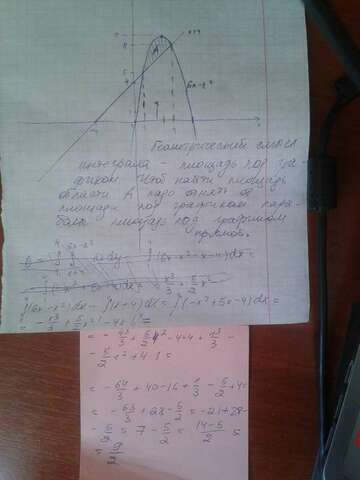 x+4
6x-x²
A
Геометрический смысл
интеграла - площадь под гра-
фиком. Чтоб найти площадь
области A надо отнять от
площади под графиком пара-
болы площадь под графиком
прямой.
∫(6x-x²)dx - ∫(x+4)dx = ∫(-x²+5x-4)dx =
= -x³/3 + 5/2x² - 4x
= -4³/3 + 5/2·4² - 4·4 + 1³/3 -
- 5/2·1² + 4·1 =
= -64/3 + 40 - 16 + 1/3 - 5/2 + 4 =
= -63/3 + 28 - 5/2 = -21 + 28 -
- 5/2 = 7 - 5/2 = (14-5)/2 =
= 9/2